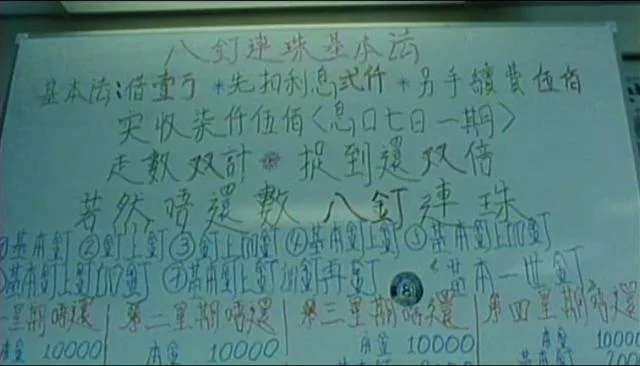 八釘連珠基本法
基本法:借壹亐 *先扣利息弍仟 *另手續費伍佰
实收柒仟伍佰〈息口七日一期〉
走數双計 * 捉到還双倍
若然唔還數八釘連珠
基本釘②釘上釘③釘上加釘④基本釘上釘 基本釘上加釘
基本釘上釘加釘 基本釘上釘加釘再釘 基本一世釘
一星期唔還 第二星期唔還 第三星期唔還 第四星期唔還
本金 10000 本金 10000 本金 10000 本金 10000